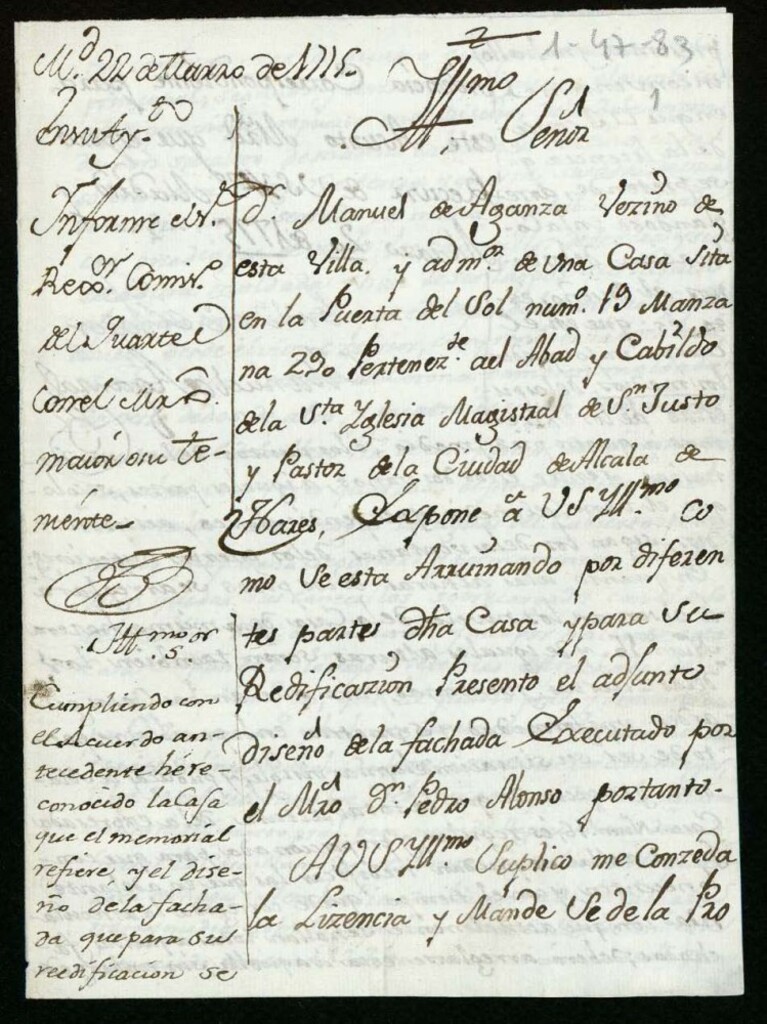 1-47-83
1
M.d 22 de Marzo de 1775.
En su Ay.to
Informe el S.r
Rex.or Comis.o
del Quartel
con el Mro
maior o su te-
niente-
Ill.mo S.or
Cumpliendo con
el Acuerdo an-
tecedente hé re-
conocido la Casa
que el memorial
refiere, y el dise-
ño de la facha-
da que para su
reedificacion se
Yll.mo
Señor
D.n Manuel de Aganza Vezino de
esta Villa, y adm.or de una Casa Sita
en la Puerta del Sol num.o 19 Manza
na 290 Pertenez.te ael Abad y Cabildo
de la S.ta Yglesia Magistral de S.n Justo
y Pastor de la Ciudad de Alcala de
Hares, Expone a VS Yll.mo co
mo se esta Arruinando por diferen
tes partes dha Casa y para su
Redificazion Presento el adjunto
diseño de la fachada Executado por
el Mro d.n Pedro Alonso por tanto-
A VS Yll.mo Suplico me Conzeda
la Lizencia y Mande Se de la Pro